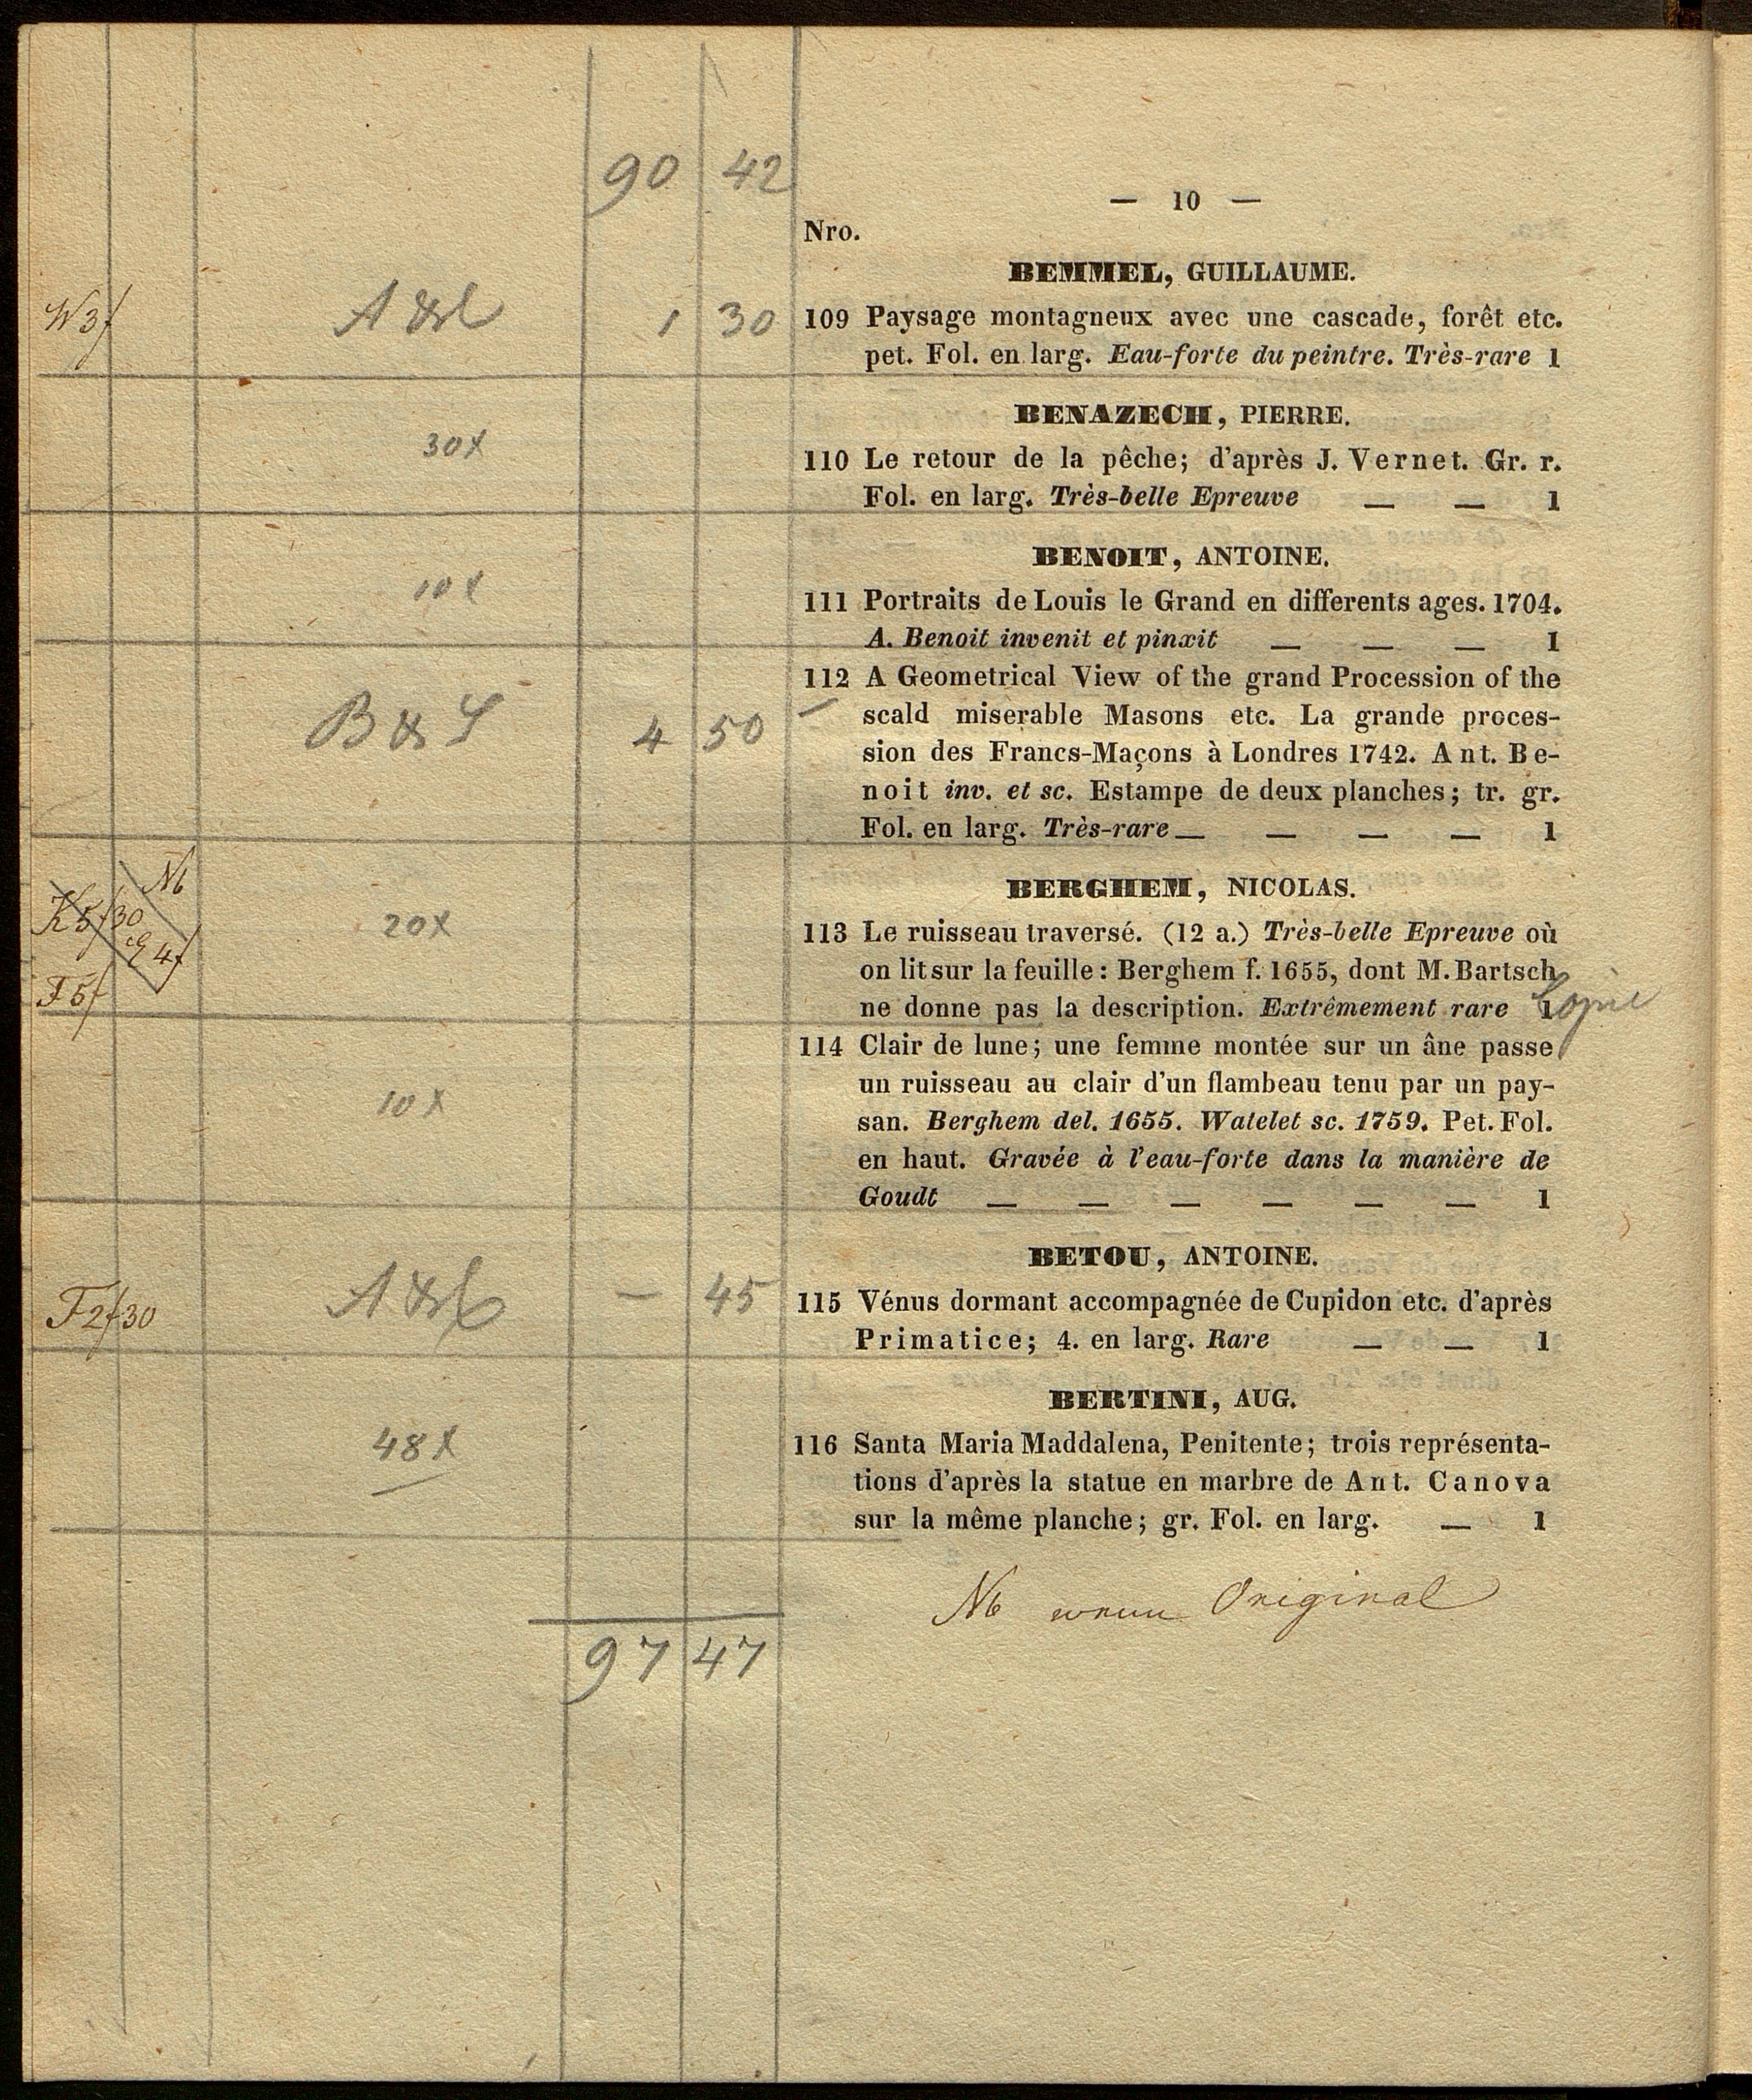 90 42
— 10 —
Nro.
BEMMEL, GUILLAUME.
W 3f
1 30
109 Paysage montagneux avec une cascade, forêt etc.
pet. Fol. en larg. Eau-forte du peintre. Très-rare 1
BENAZECH, PIERRE.
30x
110 Le retour de la pêche; d'après J. Vernet. Gr. r.
Fol. en larg. Très-belle Epreuve — — 1
BENOIT, ANTOINE.
10x
111 Portraits de Louis le Grand en differents ages. 1704.
A. Benoit invenit et pinxit — — — 1
112 A Geometrical View of the grand Procession of the
B & S 4 50
scald miserable Masons etc. La grande proces-
sion des Francs-Maçons à Londres 1742. Ant. Be-
noit inv. et sc. Estampe de deux planches; tr. gr.
Fol. en larg. Très-rare — — — — 1
BERGHEM, NICOLAS.
NB
K 5f 30
4f
F 5f
20x
113 Le ruisseau traversé. (12 a.) Très-belle Epreuve où
on lit sur la feuille: Berghem f. 1655, dont M. Bartsch
ne donne pas la description. Extrêmement rare 1
Copie
114 Clair de lune; une femme montée sur un âne passe
un ruisseau au clair d'un flambeau tenu par un pay-
10x
san. Berghem del. 1655. Watelet sc. 1759. Pet. Fol.
en haut. Gravée à l'eau-forte dans la manière de
Goudt — — — — — — 1
BETOU, ANTOINE.
F 2f 30
— 45
115 Vénus dormant accompagnée de Cupidon etc. d'après
Primatice; 4. en larg. Rare — — 1
BERTINI, AUG.
48x
116 Santa Maria Maddalena, Penitente; trois représenta-
tions d'après la statue en marbre de Ant. Canova
sur la même planche; gr. Fol. en larg. — 1
NB wenn Original
97 47